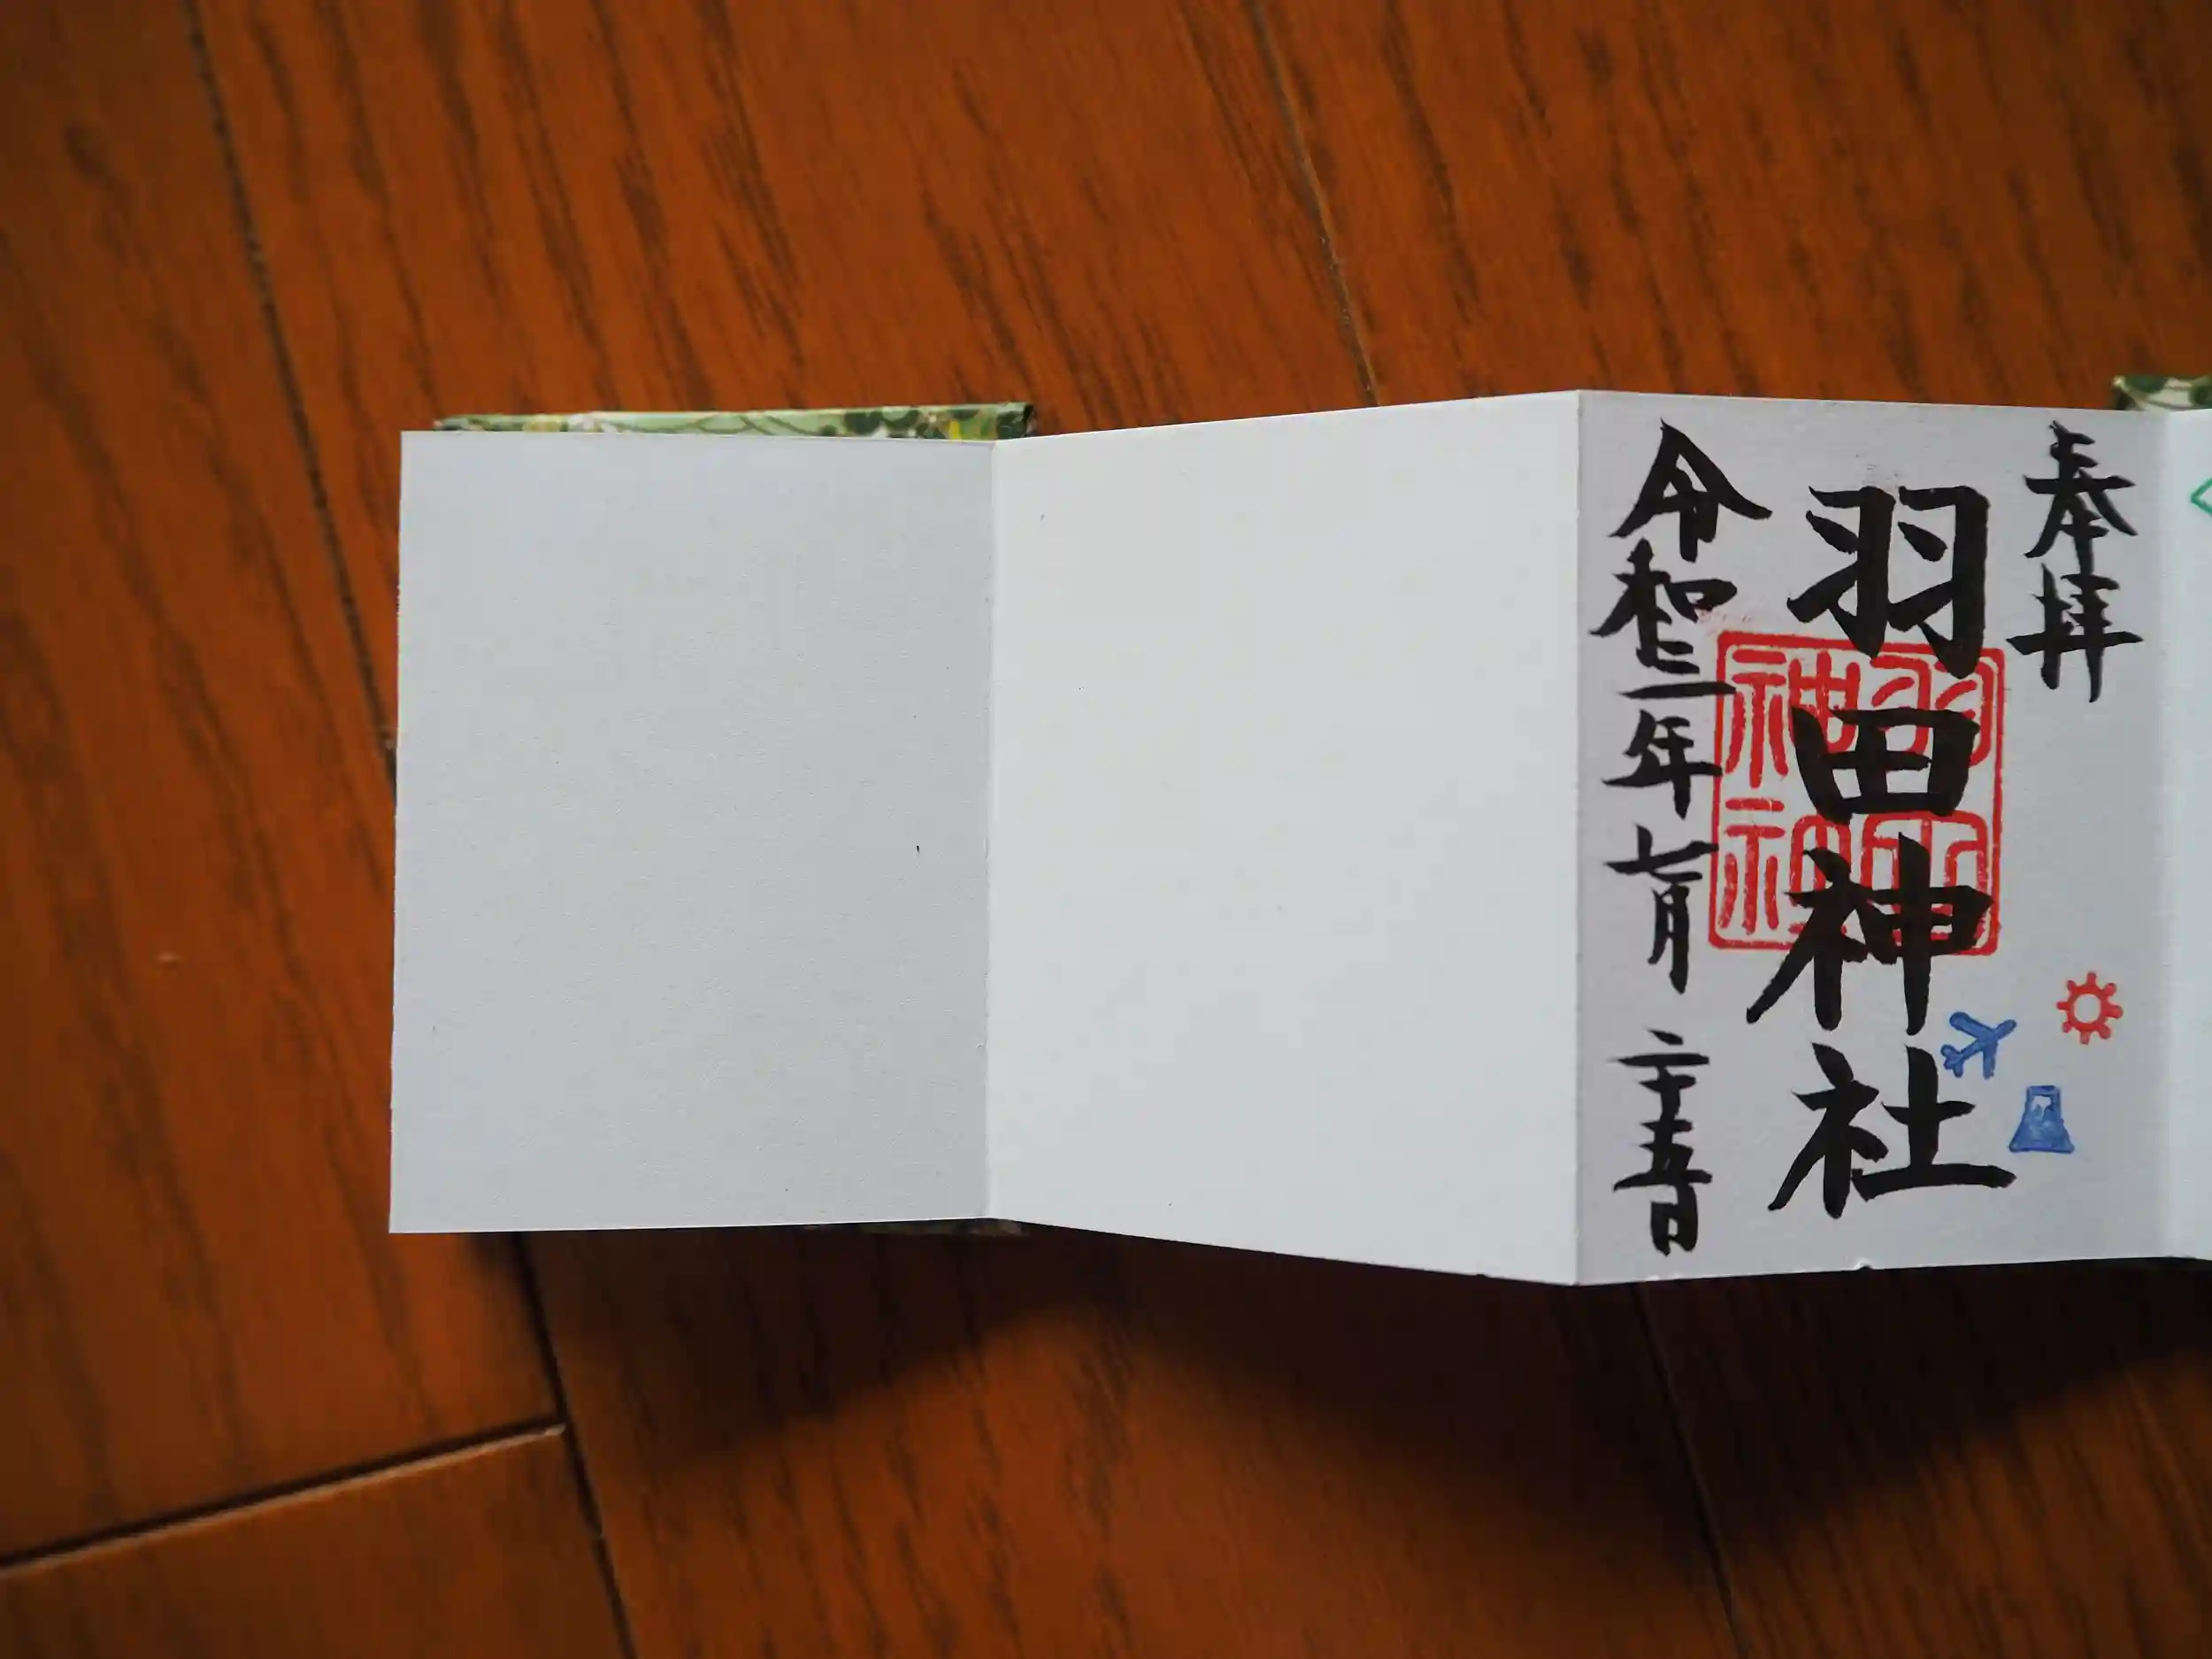 奉拝
羽田神社
令和三年七月二十五日
羽田
神社